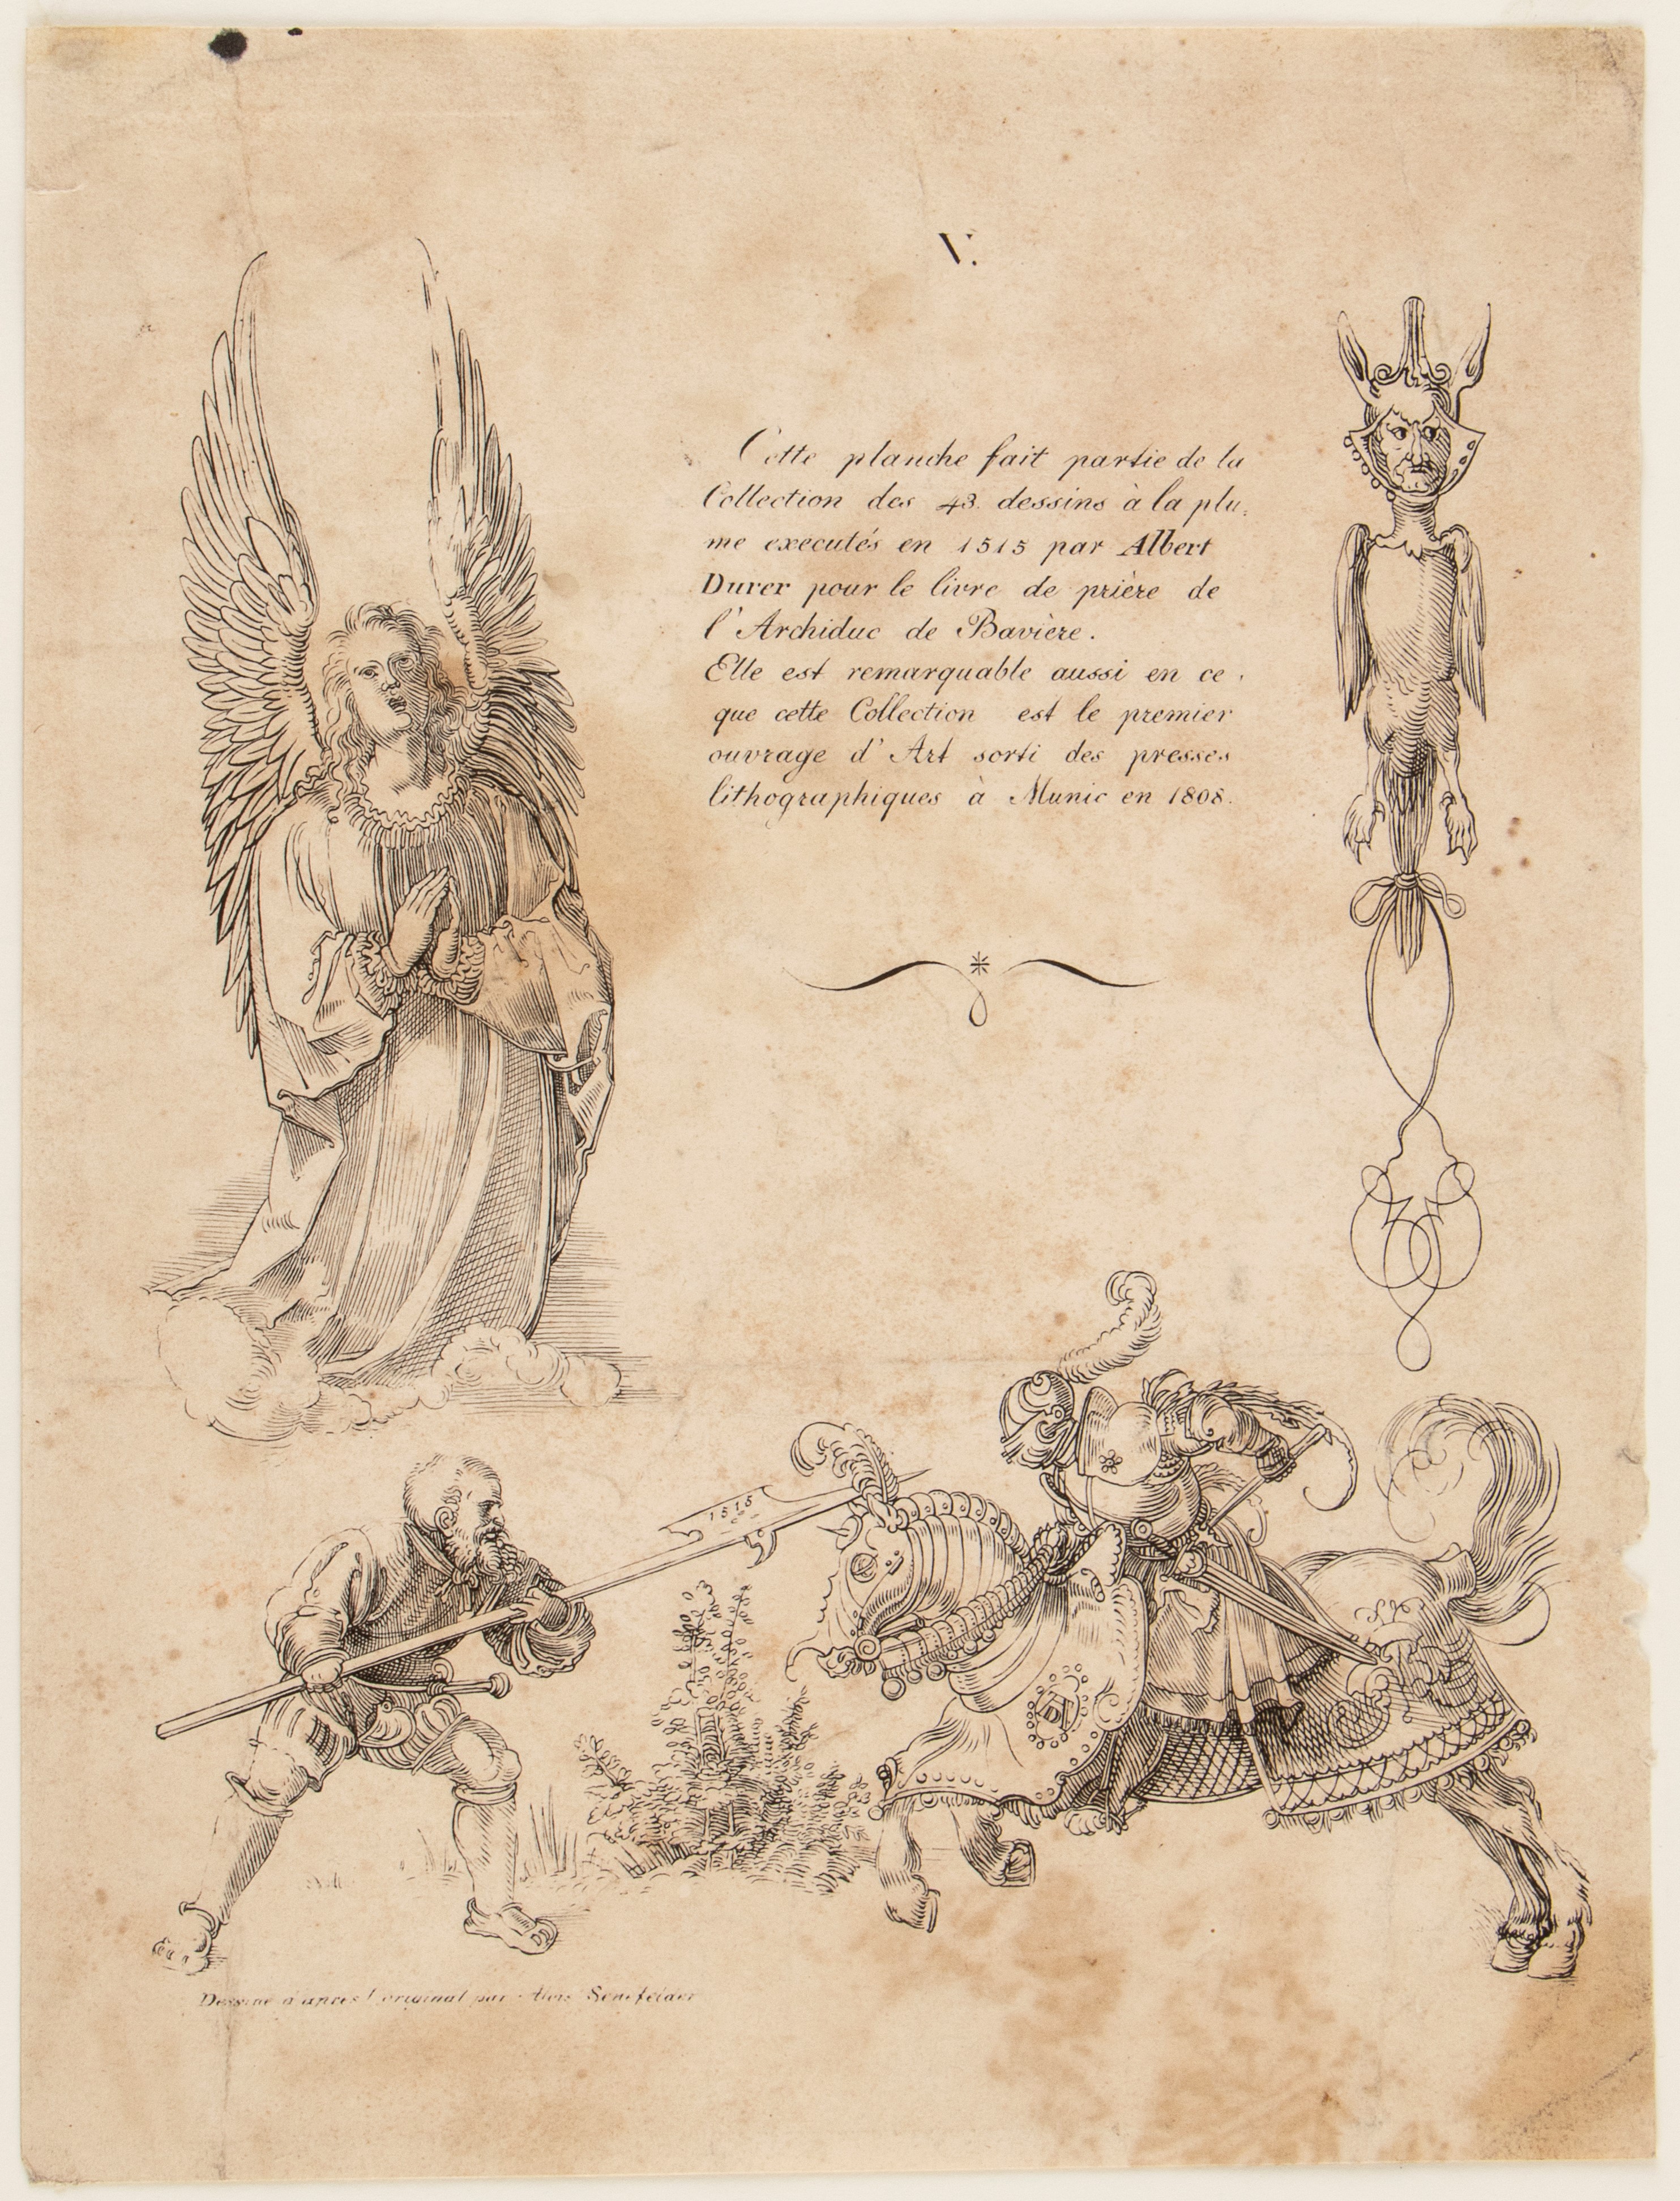 V.
Cette planche fait partie de la
Collection des 43. dessins à la plu-
me executés en 1515 par Albert
Durer pour le livre de prière de
l'Archiduc de Bavière.
Elle est remarquable aussi en ce
que cette Collection est le premier
ouvrage d'Art sorti des presses
lithographiques à Munic en 1808.
1515
Dessiné d'après l'original par Alois Senefelder